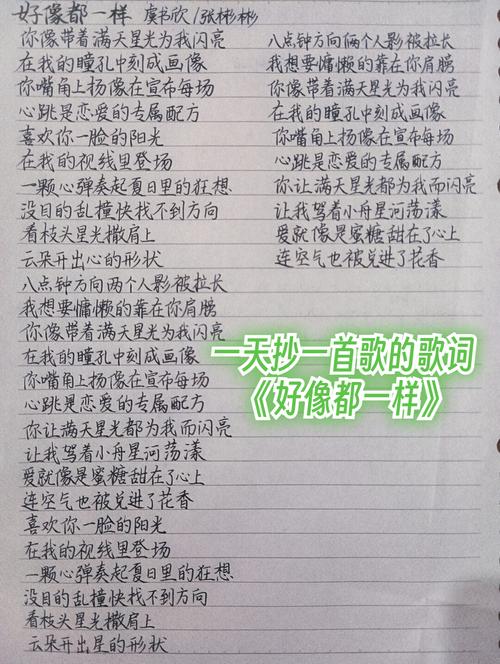 好像都一样 虞书欣/张彬彬
你像带着满天星光为我闪亮
在我的瞳孔中刻成画像
你嘴角上扬像在宣布每场
心跳是恋爱的专属配方
喜欢你一脸的阳光
在我的视线里登场
一颗心弹奏起夏日里的狂想
没目的乱撞快找不到方向
看枝头星光撒肩上
云朵开出心的形状
八点钟方向两个人影被拉长
我想要慵懒的靠在你肩膀
你像带着满天星光为我闪亮
在我的瞳孔中刻成画像
你嘴角上扬像在宣布每场
心跳是恋爱的专属配方
你让满天星光都为我而闪亮
让我驾着小舟星河荡漾
爱就像是蜜糖甜在了心上
连空气也被兑进了花香
喜欢你一脸的阳光
在我的视线里登场
一颗心弹奏起夏日里的狂想
没目的乱撞快找不到方向
看枝头星光撒肩上
云朵开出星的形状
八点钟方向俩个人影被拉长
我想要慵懒的靠在你肩膀
你像带着满天星光为我闪亮
在我的瞳孔中刻成画像
你嘴角上扬像在宣布每场
心跳是恋爱的专属配方
你让满天星光都为我而闪亮
让我驾着小舟星河荡漾
爱就像是蜜糖甜在了心上
连空气也被兑进了花香
一天抄一首歌的歌词
《好像都一样》